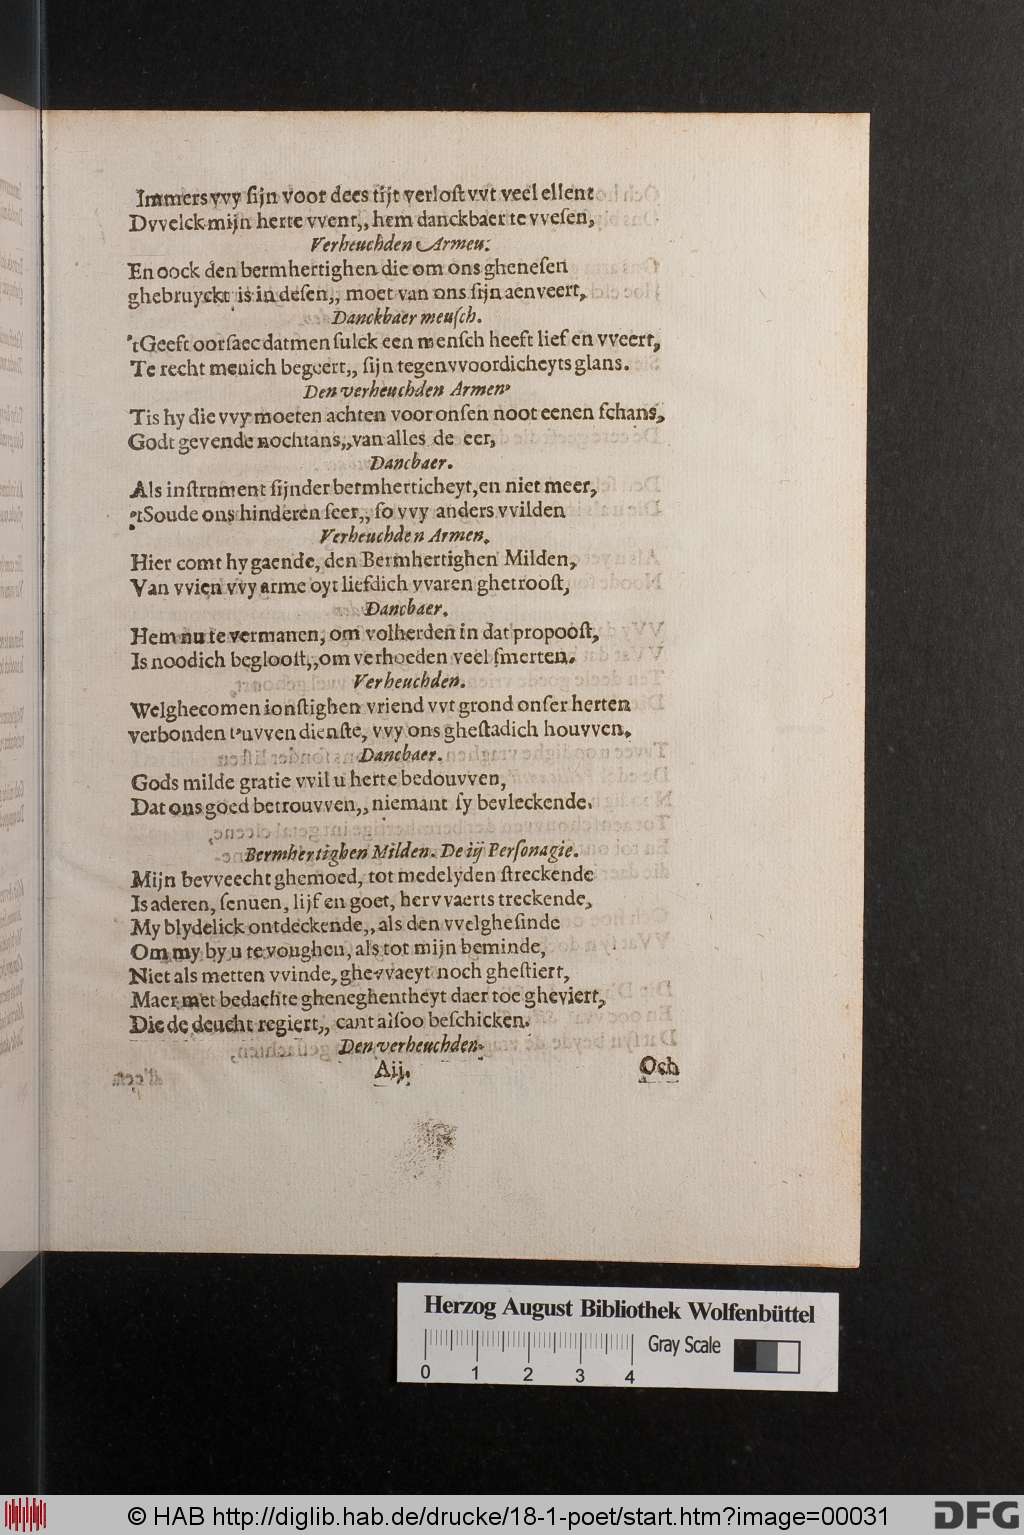 Immers vvy ſijn voor dees tijt verloſt vvt veel ellent
Dvvelck mijn herte vvent,, hem danckbaer te vveſen,
Verheuchden Armeu.
En oock den bermhertighen die om ons gheneſen
ghebruyckt is in deſen,, moet van ons ſijn aenveert,
Danckbaer meuſch.
'tGeeft oorſaec datmen ſulck een menſch heeft lief en vveert,
Te recht menich begeert,, ſijn tegenvvoordicheyts glans.
Den verheuchden Armen'
Tis hy die vvy moeten achten voor onſen noot eenen ſchans,
Godt gevende nochtans,,van alles de eer,
Dancbaer.
Als inſtrument ſijnder bermherticheyt,en niet meer,
'tSoude ons hinderen ſeer,, ſo vvy anders vvilden
Verheuchden Armen,
Hier comt hy gaende, den Bermhertighen Milden,
Van vvien vvy arme oyt liefdich vvaren ghetrooſt,
Dancbaer.
Hem nu te vermanen, om volherden in dat propooſt,
Is noodich beglooſt,,om verhoeden veel ſmerten.
Verheuchden.
Welghecomen ionſtighen vriend vvt grond onſer herten
verbonden t'uvven dienſte, vvy ons gheſtadich houvven,
Dancbaer.
Gods milde gratie vvil u herte bedouvven,
Dat ons goed betrouvven,, niemant ſy bevleckende.
Bermhertighen Milden. De iij Perſonagie.
Mijn bevveecht ghemoed, tot medelyden ſtreckende
Is aderen, ſenuen, lijf en goet, hervvaerts treckende,
My blydelick ontdeckende,, als den vvelgheſinde
Om my by u te voughen, als tot mijn beminde,
Niet als metten vvinde, ghevvaeyt noch gheſtiert,
Maer met bedachte gheneghentheyt daer toe gheviert,
Die de deucht regiert,, cant alſoo beſchicken.
Den verheuchden.
Aij. Och
Herzog August Bibliothek Wolfenbüttel
Gray Scale
0 1 2 3 4
© HAB http://diglib.hab.de/drucke/18-1-poet/start.htm?image=00031
DFG